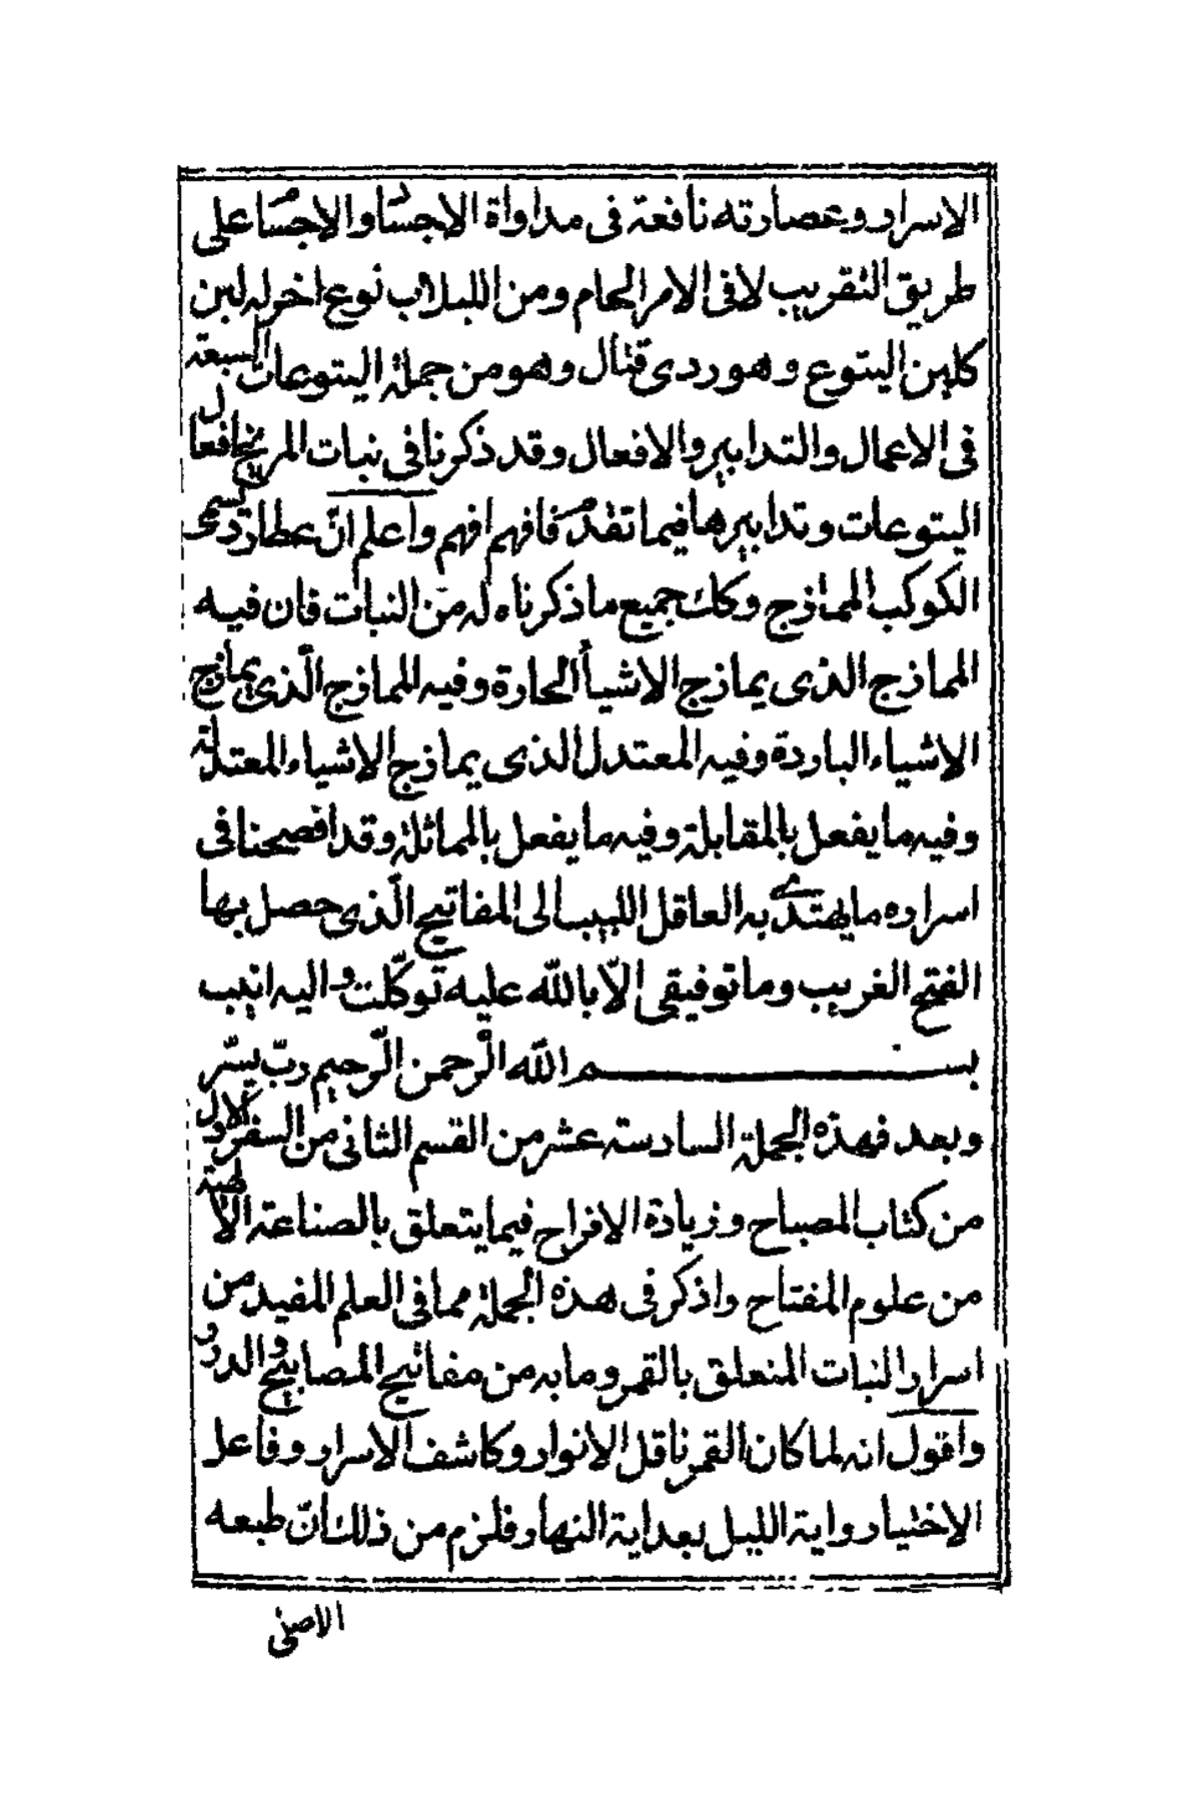 الاسرار وعصارته نافعة فى مداواة الاجساد والاجسام على
طريق التقريب لا فى الامر الحام ومن اللبلاب نوع اخر له لبن
كلبن اليتوع وهو ردى قتال وهو من جملة اليتوعات السبعة
فى الاعمال والتدابير والافعال وقد ذكرنا فى نبات المريخ افعال
اليتوعات وتدابيرها فيما تقدم فافهم افهم واعلم انّ عطارد يسمى
الكوكب الممازج وكك جميع ما ذكرناه له من النبات فان فيه
الممازج الذى يمازج الاشيأ الحارة وفيه الممازج الّذى يمازج
الاشياء الباردة وفيه المعتدل الذى يمازج الاشياء المعتدلة
وفيه ما يفعل بالمقابلة وفيه ما يفعل بالمماثلة وقد افصحنا فى
اسراره ما يهتدى به العاقل اللبيب الى المفاتيح الّذى حصل بها
الفتح الغريب وما توفيقى الّا بالله عليه توكّلت واليه انيب
بسم الله الرّحمن الرّحيم ربّ يسّر
وبعد فهذه الجملة السادسة عشر من القسم الثانى من السفر الاول
من كتاب المصباح وزيادة الافراح فيما يتعلق بالصناعة الالهية
من علوم المفتاح واذكر فى هذه الجملة مما فى العلم المفيد من
اسرار النبات المتعلق بالقمر وما به من مفاتيح المصابيح والدرر
واقول انه لما كان القمر ناقل الانوار وكاشف الاسرار وفاعل
الاختيار واية الليل بعد اية النهار فلزم من ذلك انّ طبعه
الاصلى